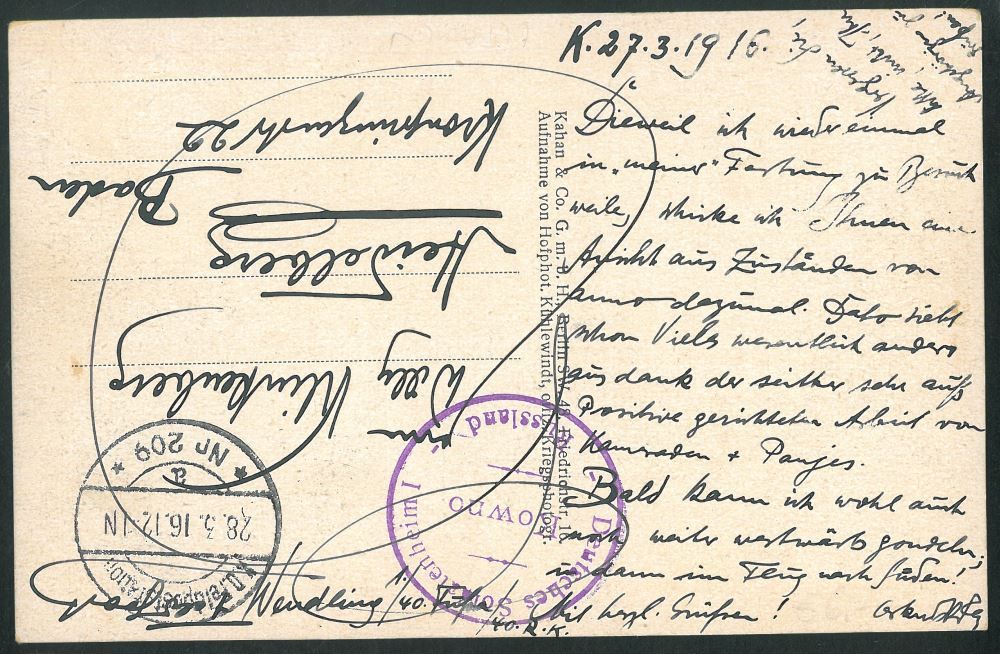 K. 27.3.1916.
Dieweil ich wieder einmal
in "meiner" Festung zu Besuch
weile, schicke ich Ihnen eine
Ansicht aus Zuständen von
anno dazumal. Dato sieht
schon Vieles wesentlich anders
aus dank der seither sehr aufs
Positive gerichteten Arbeit von
Kameraden + Panjes.
Bald kann ich wohl auch
noch weiter westwärts gondeln;
u. dann im Flug nach Süden!
Mit herzl. Grüßen!
Kahan & Co. G. m. b. H., Berlin SW 48, Friedrichstr.
Aufnahme von Hofphot. Kühlewindt, offiz. Kriegsphotogr.
Willy Klinkenberg
Heidelberg
Baden
Kronprinzenstr 22
Feldpost
Wendling
40. R.K.
Deutsches Soldatenheim I
Kowno
Russland
28.3.16.12-1N
* Nr 209 *
a